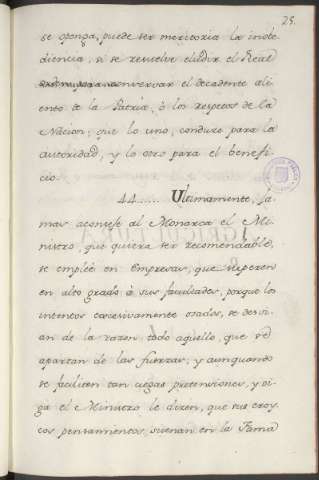 25.
se oponga, puede ser meritoria la inobe
diencia, si se resuelve eludir el Real
para conservar el decadente ali
ento de la Patria, ò los respetos de la
Nacion; que lo uno, conduce para la
autoridad, y lo otro para el benefi
cio.
44...... Ultimamente, ja
mas aconseje al Monarca el Mi
nistro, que quiera ser recomendable,
se empleè en Empresas, que superen
en alto grado à sus facultades, porque los
intentos excesivamente osados, se desvi
an de la razon todo aquello, que se
apartan de las fuerzas; y aunquando
se faciliten tan ciegas pretensiones, y oi
ga el Ministro le dicen, que sus eroy
cos pensamientos suenan en la Fama